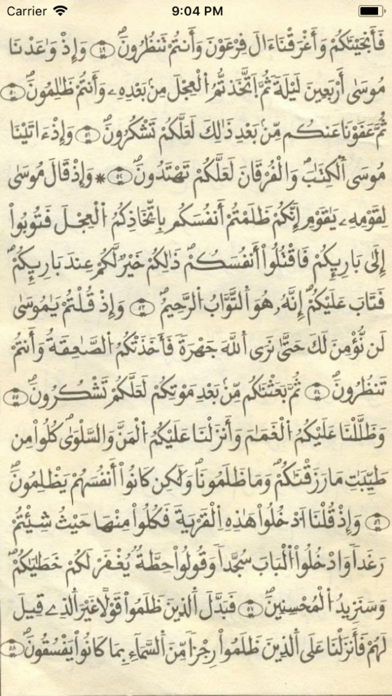 Carrier 9:04 PM
فَأَنجَيْنَٰكُمْ وَأَغْرَقْنَا ءَالَ فِرْعَوْنَ وَأَنتُمْ تَنظُرُونَ ٤٩ وَإِذْ وَٰعَدْنَا
مُوسَىٰ أَرْبَعِينَ لَيْلَةً ثُمَّ اَتَّخَذتُّمُ اُلْعِجْلَ مِنۢ بَعْدِهِۦ وَأَنتُمْ ظَٰلِمُونَ ٥٠
ثُمَّ عَفَوْنَا عَنكُم مِّنۢ بَعْدِ ذَٰلِكَ لَعَلَّكُمْ تَشْكُرُونَ ٥١ وَإِذَ اٰتَيْنَا
مُوسَى اَلْكِتَٰبَ وَالْفُرْقَانَ لَعَلَّكُمْ تَهْتَدُونَ ٥٢ * وَإِذْ قَالَ مُوسَىٰ
لِقَوْمِهِۦ يَٰقَوْمِ إِنَّكُمْ ظَلَمْتُمُۥ أَنفُسَكُم بِاتِّخَاذِكُمُ اُلْعِجْلَ فَتُوبُوٓاْ
إِلَىٰ بَارِئِكُمْ فَاقْتُلُوٓاْ أَنفُسَكُمْ ذَٰلِكُمْ خَيْرٌ لَّكُمْ عِندَ بَارِئِكُمْ
فَتَابَ عَلَيْكُمُۥٓ إِنَّهُۥ هُوَ اَلتَّوَّابُ اُلرَّحِيمُ ٥٣ وَإِذْ قُلْتُمْ يَٰمُوسَىٰ
لَن نُّومِنَ لَكَ حَتَّىٰ نَرَى اَللَّهَ جَهْرَةً فَأَخَذَتْكُمُ اُلصَّٰعِقَةُ وَأَنتُمْ
تَنظُرُونَ ٥٤ ثُمَّ بَعَثْنَٰكُم مِّنۢ بَعْدِ مَوْتِكُمْ لَعَلَّكُمْ تَشْكُرُونَ ٥٥
وَظَلَّلْنَا عَلَيْكُمُ اُلْغَمَٰمَ وَأَنزَلْنَا عَلَيْكُمُ اُلْمَنَّ وَالسَّلْوَىٰ كُلُواْ مِن
طَيِّبَٰتِ مَا رَزَقْنَٰكُمْ وَمَا ظَلَمُونَا وَلَٰكِن كَانُوٓاْ أَنفُسَهُمْ يَظْلِمُونَ
٥٦ وَإِذْ قُلْنَا اَدْخُلُواْ هَٰذِهِ اِلْقَرْيَةَ فَكُلُواْ مِنْهَا حَيْثُ شِئْتُمْ
رَغَدًا وَادْخُلُواْ اُلْبَابَ سُجَّدًا وَقُولُواْ حِطَّةٌ يُغْفَرْ لَكُمْ خَطَٰيَٰكُمْ
وَسَنَزِيدُ اُلْمُحْسِنِينَ ٥٧ فَبَدَّلَ اَلذِينَ ظَلَمُواْ قَوْلًا غَيْرَ اَلذِے قِيلَ
لَهُمْ فَأَنزَلْنَا عَلَى اَلذِينَ ظَلَمُواْ رِجْزًا مِّنَ اَلسَّمَآءِ بِمَا كَانُواْ يَفْسُقُونَ ٥٨